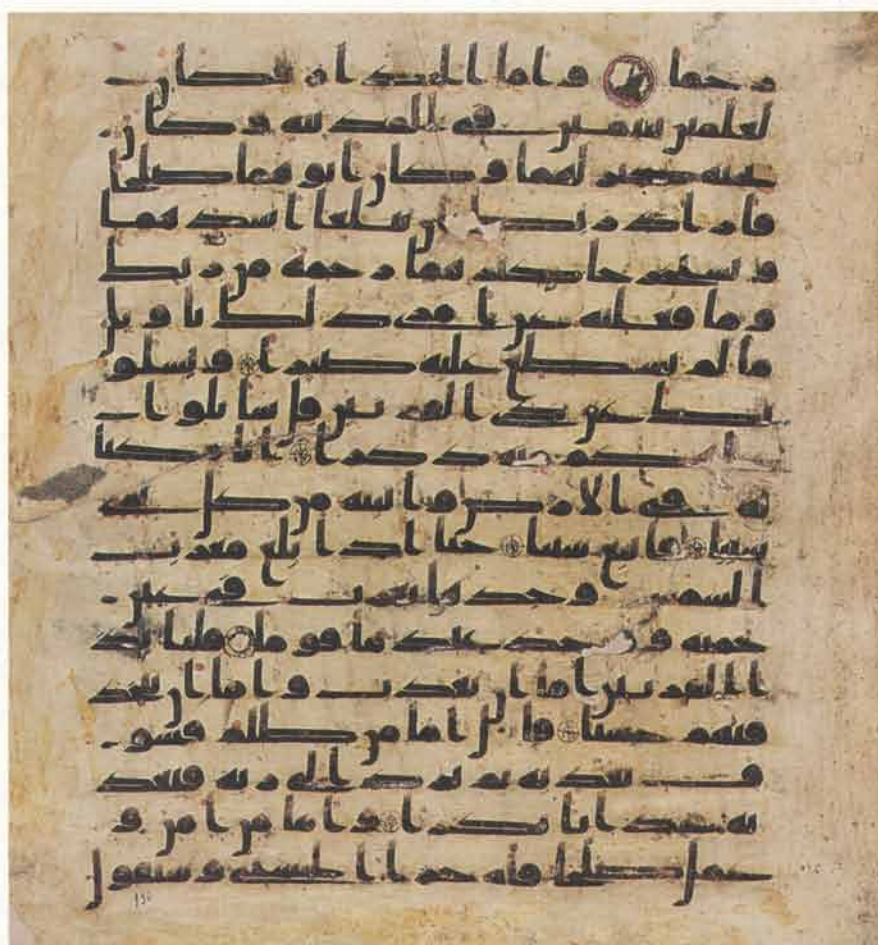 رحما واما الجدار فكان
لغلمين يتيمين في المدينة وكان
تحته كنز لهما وكان ابوهما صلحا
فاراد ربك ان يبلغا اشدهما
ويستخرجا كنزهما رحمة من ربك
وما فعلته عن امري ذلك تاويل
ما لم تسطع عليه صبرا ويسلو
نك عن ذي القرنين قل ساتلوا
عليكم منه ذكرا انا مكنا
له في الارض واتينه من كل شي
سببا فاتبع سببا حتا اذا بلغ مغرب
الشمس وجدها تغرب في عين
حمية ووجد عندها قوما قلنا يذ
ا القرنين اما ان تعذب واما ان تتخذ
فيهم حسنا قال اما من ظلم فسو
ف نعذبه ثم يرد الى ربه فيعذ
به عذابا نكرا واما من امن و
عمل صلحا فله جزا الحسنى وسنقول